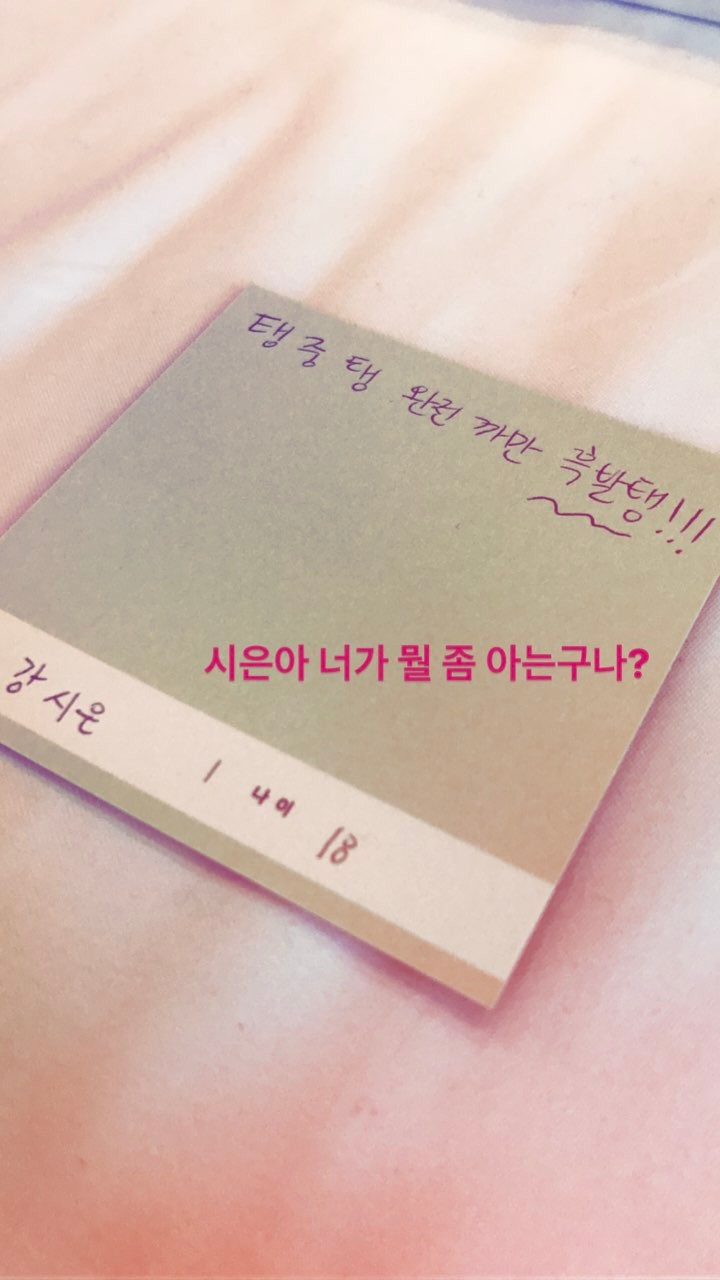 탱 중 탱 완전 까만 흑발탱!!!
시은아 너가 뭘 좀 아는구나?
강시은 / 나이 18